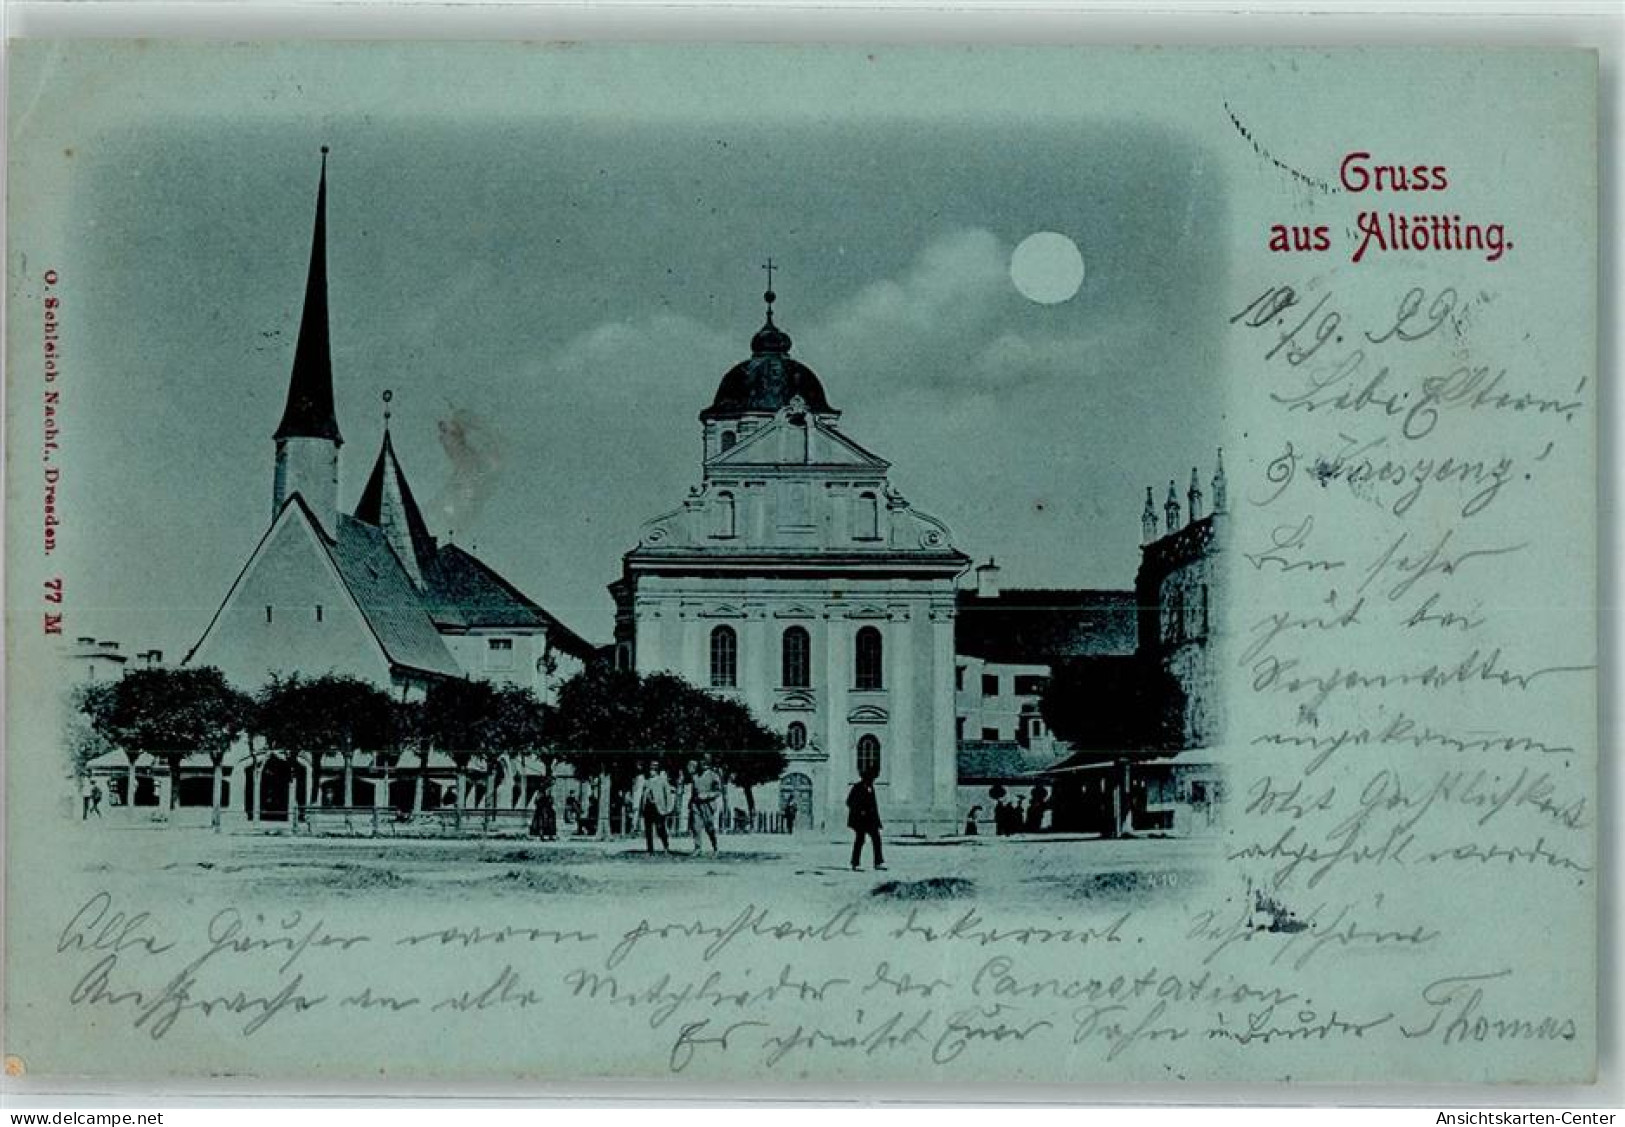 Gruss
aus Altötting.
O. Schleich Nachf., Dresden. 77 M
10./9. 99
Liebe Eltern!
Bin sehr
gut bei
Regenwetter
angekommen.
Mit
abgeholt worden.
Alle Häuser waren prachtvoll dekoriert. Sehr schöne
Ansprache an alle Mitglieder der
Es grüßt Euer Sohn u Bruder Thomas
delcampe.net
Ansichtskarten-Center